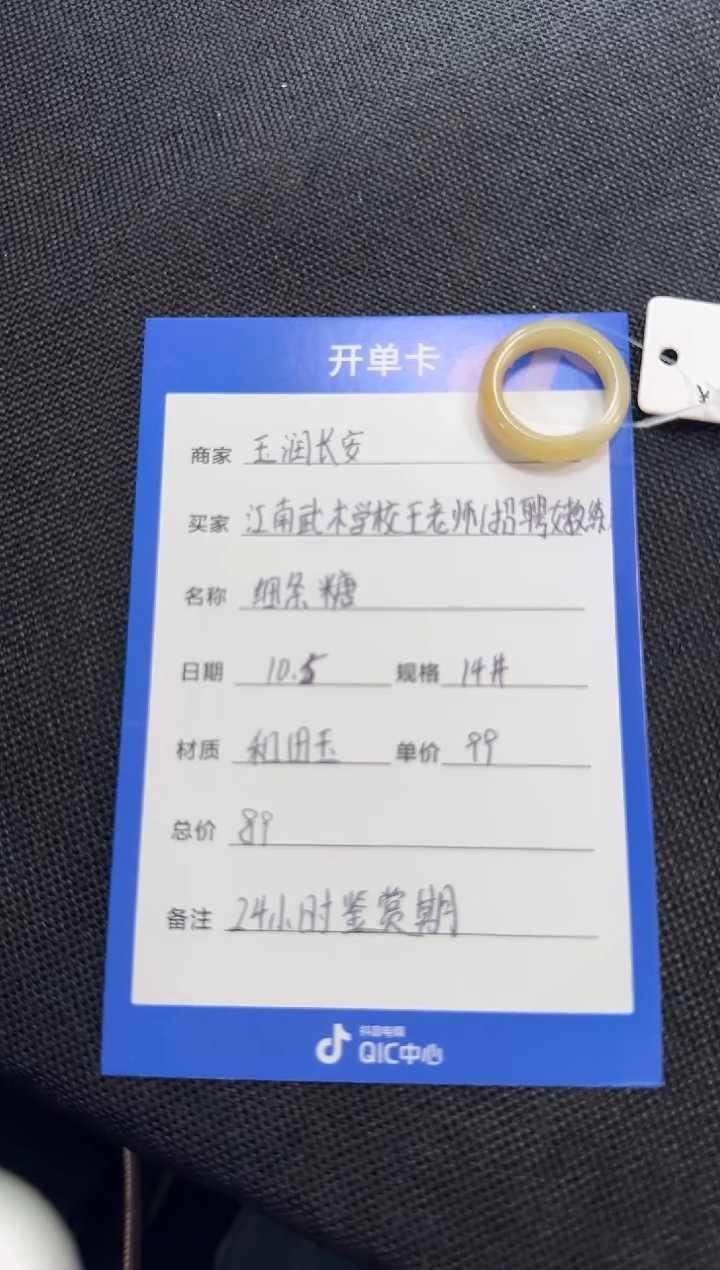 开单卡
商家 玉润长安
买家 江南武术学校王老师(招聘女教练)
名称 细条糖
日期 10.5 规格 14#
材质 和田玉 单价 99
总价 89
备注 24小时鉴赏期
抖音电商
QIC中心